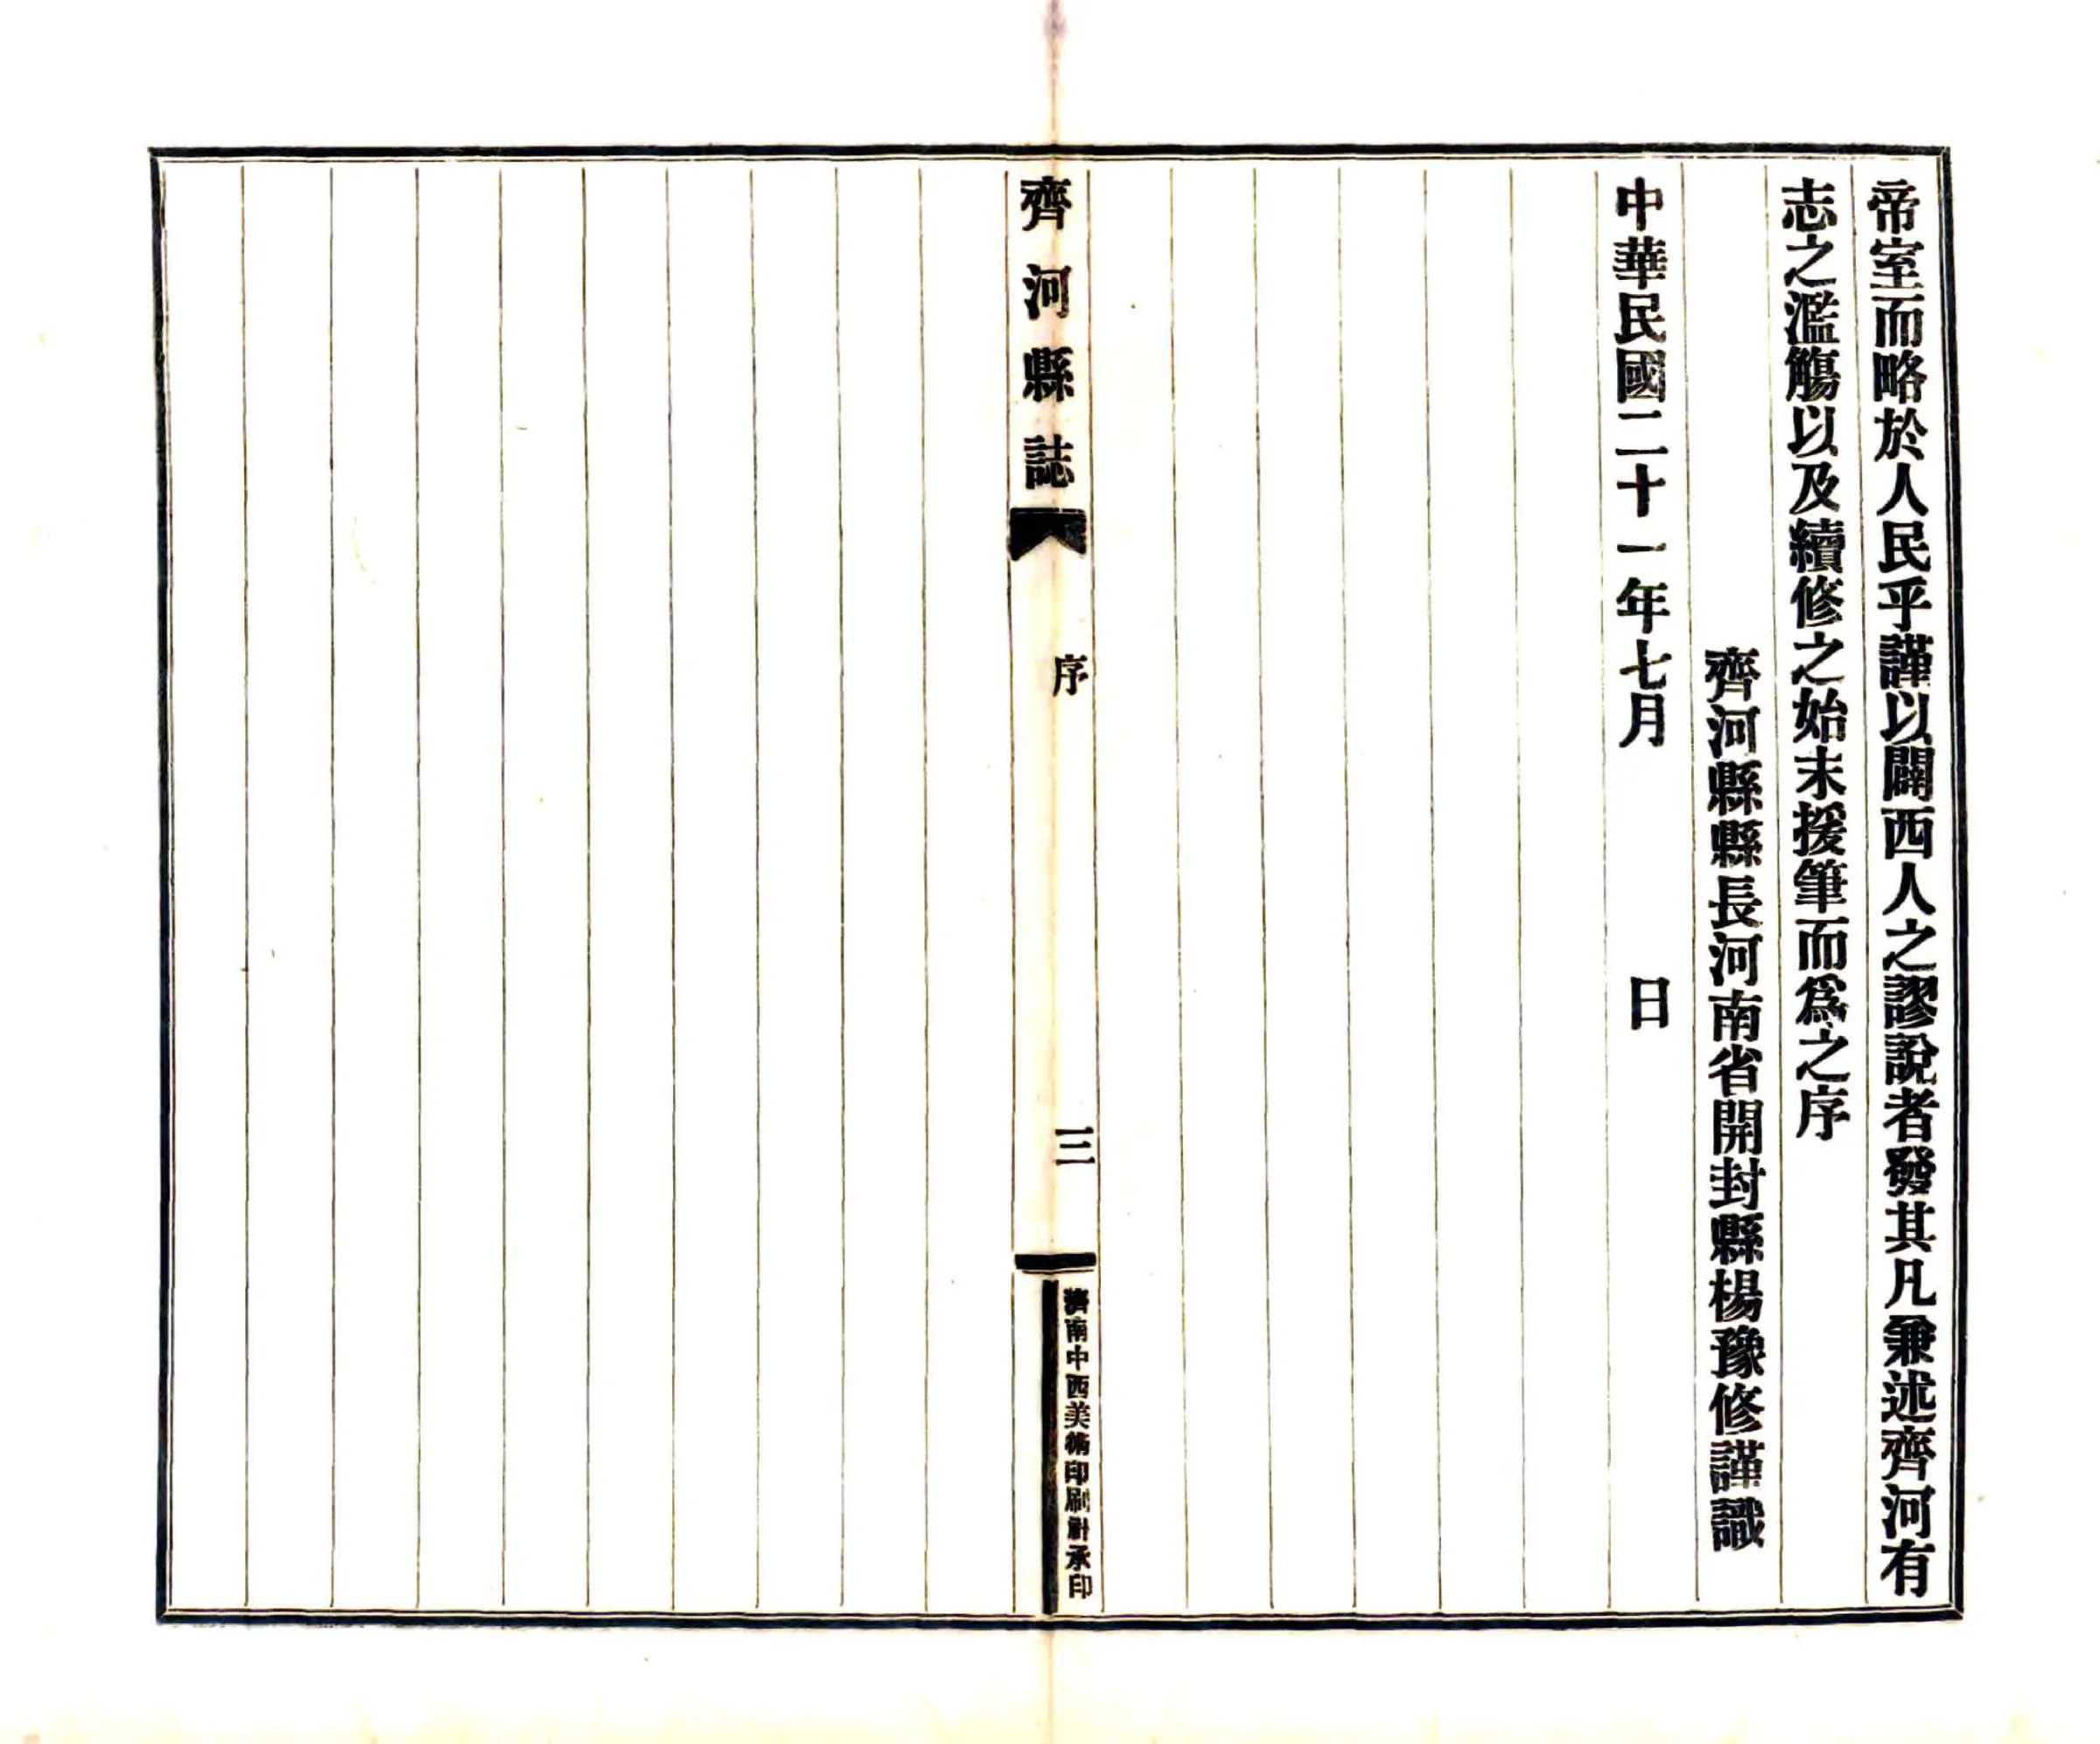 帝室而略於人民乎謹以闢西人之謬說者發其凡兼述齊河有
志之濫觴以及續修之始末援筆而爲之序
齊河縣縣長河南省開封縣楊豫修謹識
中華民國二十一年七月　　　　日
齊河縣誌
序
三
濟南中西美術印刷社承印